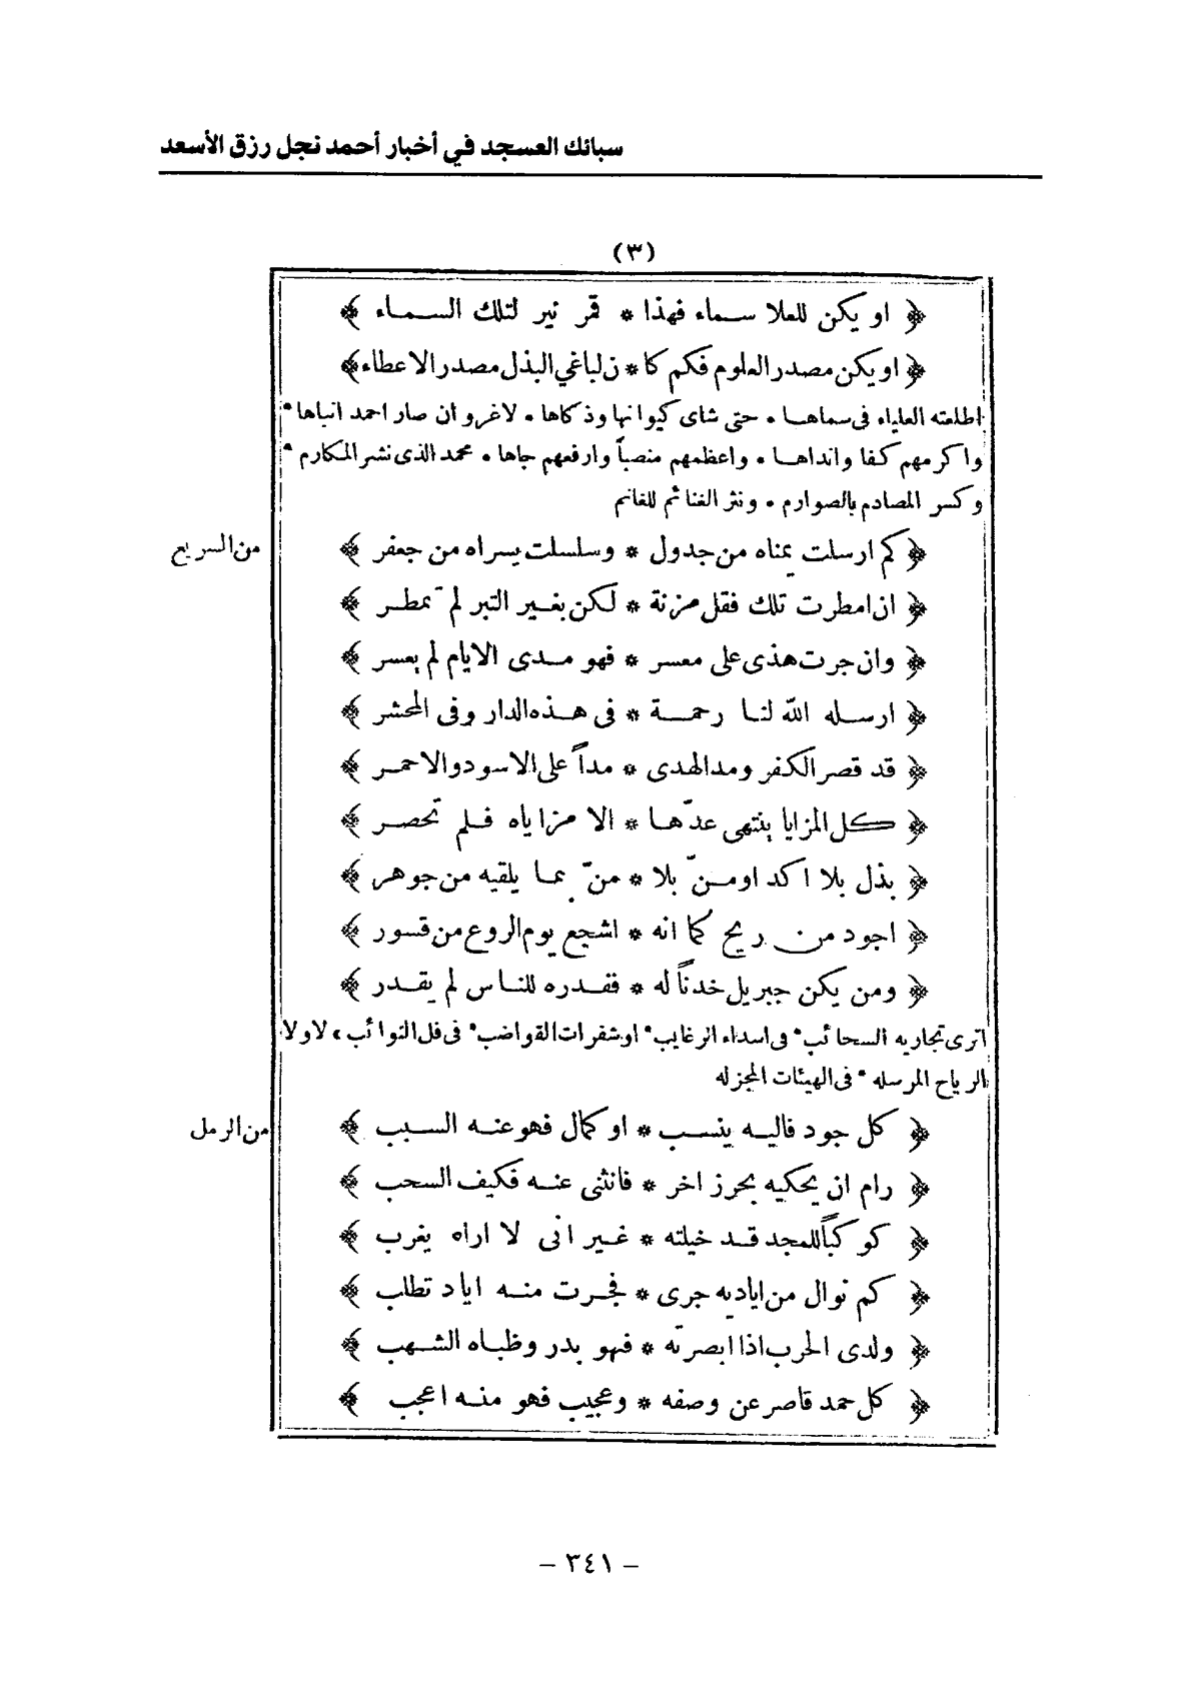 سبائك العسجد في أخبار أحمد نجل رزق الأسعد
(٣)
﴿ او يكن للعلا سماء فهذا * قمر نير لتلك السماء ﴾
﴿ او يكن مصدر العلوم فكم كا * ن لباغي البذل مصدر الاعطاء ﴾
اطلعته العلياء فى سماها * حتى شاى كيوانها وذكاها * لاغرو ان صار احمد انباها *
واكرمهم كفا وانداها * واعظمهم منصباً وارفعهم جاها * محمد الذى نشر المكارم *
وكسر المصادم بالصوارم * ونثر الغنائم للغانم
﴿ كم ارسلت يمناه من جدول * وسلسلت يسراه من جعفر ﴾ من السريع
﴿ ان امطرت تلك فقل مزنة * لكن بغير التبر لم تمطر ﴾
﴿ وان جرت هذى على معسر * فهو مدى الايام لم يعسر ﴾
﴿ ارسله الله لنا رحمة * فى هذه الدار وفى المحشر ﴾
﴿ قد قصر الكفر ومد الهدى * مداً على الاسود والاحمر ﴾
﴿ كل المزايا ينتهى عدّها * الا مزاياه فلم تحصر ﴾
﴿ بذل بلا اكد او منّ بلا * منّ بما يلقيه من جوهر ﴾
﴿ اجود من ريح كما انه * اشجع يوم الروع من قسور ﴾
﴿ ومن يكن جبريل خدناً له * فقدره للناس لم يقدر ﴾
اترى تجاريه السحائب * فى اسداء الرغايب * او شفرات القواضب * فى فل النوائب * لا ولا
الرياح المرسله * فى الهيئات المجزله
﴿ كل جود فاليه ينسب * او كمال فهو عنه السبب ﴾ من الرمل
﴿ رام ان يحكيه بحر زاخر * فانثنى عنه فكيف السحب ﴾
﴿ كوكباً للمجد قد خيلته * غير انى لا اراه يغرب ﴾
﴿ كم نوال من اياديه جرى * فجرت منه اياد تطلب ﴾
﴿ ولدى الحرب اذا ابصرته * فهو بدر وظباه الشهب ﴾
﴿ كل حمد قاصر عن وصفه * وعجيب فهو منه اعجب ﴾
– ٣٤١ –